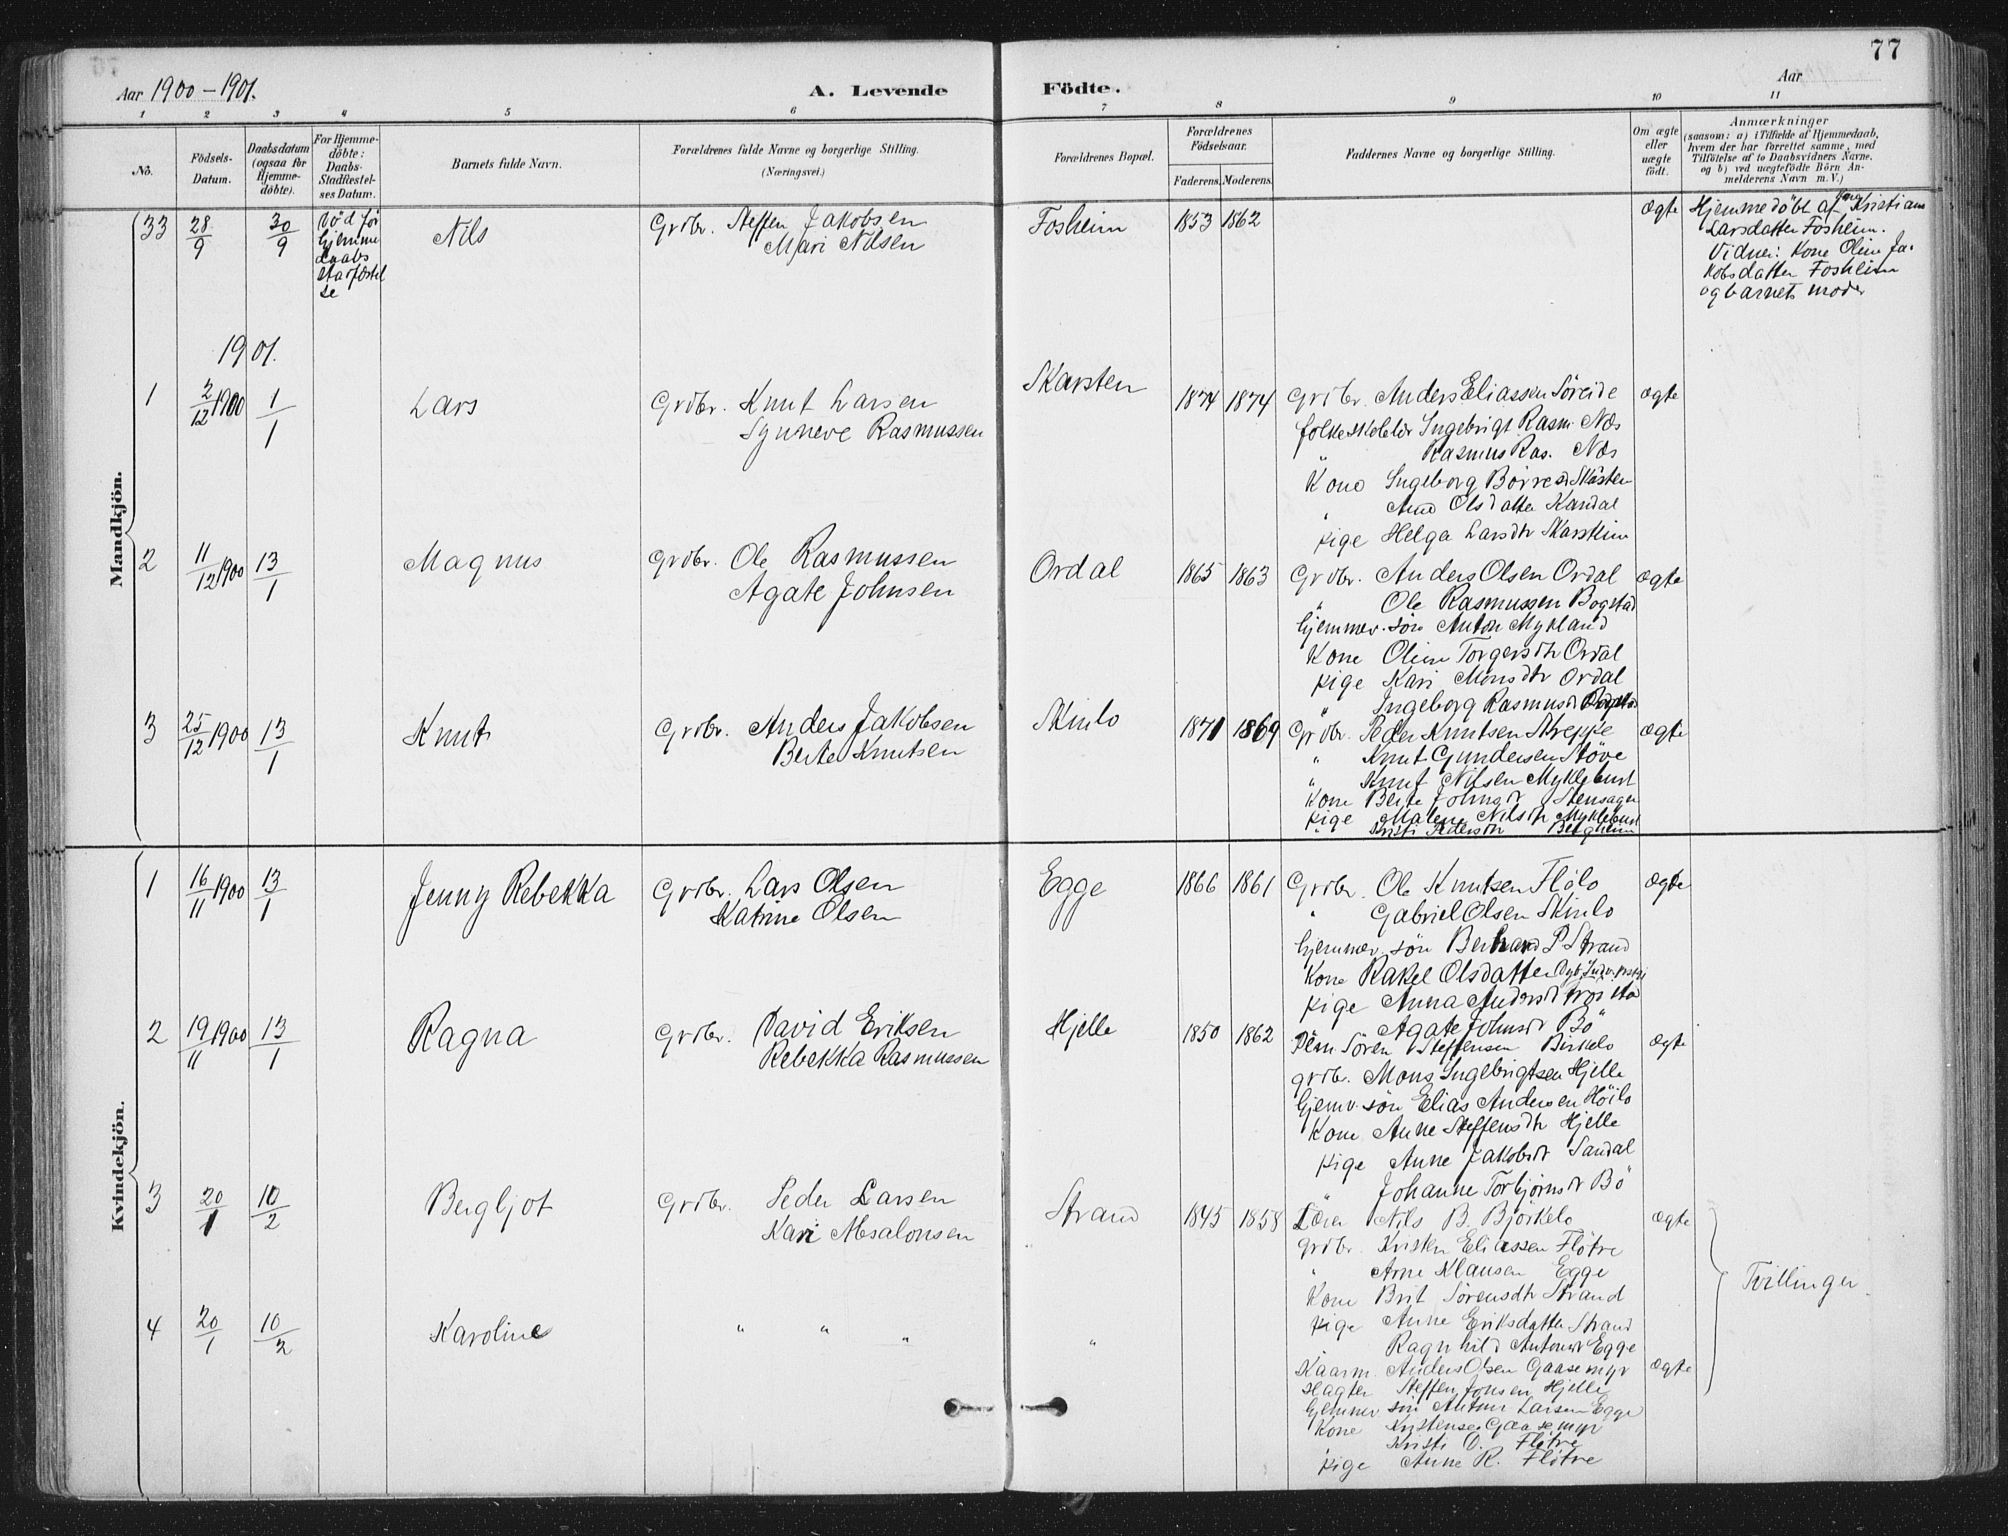 77
Aar 1900-1901.
A. Levende Födte.
Aar
1 2 3 4 5 6 7 8 9 10 11
No.
Födsels-Datum.
Daabsdatum (ogsaa för Hjemme-döbte).
For Hjemme-döbte: Daabs-Stadfæstel-ses Datum.
Barnets fulde Navn.
Forældrenes fulde Navne og borgerlige Stilling. (Næringsvei.)
Forældrenes Bopæl.
Forældrenes Födselsaar.
Faderens. Moderens.
Faddernes Navne og borgerlige Stilling.
Om ægte eller uægte födt.
Anmærkninger
(saasom: a) i Tilfælde af Hjemmedaab, hvem der har forrettet samme, med Tilföielse af to Daabsvidners Navne, og b) ved uægtefödte Börn An-melderens Navn m. V.)
Mandkjön.
33 28/9 30/9 död för hjemme daabs starfæstel se
Nils
Grdbr. Steffen Jakobsen
Mari Nilsen
Fosheim 1853 1862
ægte
Hjemmedöbt af Kone Kristiane
Larsdatter Fosheim.
Vidner: Kone Oline Ja-
kobsdatter Fosheim
og barnets moder
1901.
1 2/12 1900 1/1
Lars
Grdbr. Knut Larsen
Synneve Rasmussen
Skarsten
1874 1874
Grdbr. Anders Eliassen Söreide
ægte
folkeskolelær Ingebrigt Rasm. Næs
Rasmus Ras. Næs
Kone Ingeborg Börresd Skåsten
" Ane Olsdatter Kandal
pige Helga Larsdtr Skarsteim
2 11/12 1900 13/1
Magnus
Grdbr. Ole Rasmussen
Agate Johnsen
Ordal
1865 1863
Grdbr. Anders Olsen Ordal
ægte
" Ole Rasmussen Bogstad
hjemmev. sön Anton Mykland
Kone Oline Torgersdtr Ordal
pige Kari Monsdtr Ordal
" Ingeborg Rasmusd
3 25/12 1900 13/1
Knut
Grdbr. Anders Jakobsen
Berte Knutsen
Skinlo
1871 1869
Grdbr. Peder Knutsen Skreppe
ægte
" Knut Gundersen Stöve
" Knut Nilsen Myklebust
Kone Berte Johnsdr Stensager
pige Malene Nilsdtr Myklebust
" Kristi Pedersdtr Bergheim
Kvindekjön.
1 16/11 1900 13/1
Jenny Rebekka
Grdbr. Lars Olsen
Katrine Olsen
Egge
1866 1861
Grdbr. Ole Knutsen Flölo
ægte
" Gabriel Olsen Skinlo
hjemmev. sön Bernhard P Strand
Kone Rakel Olsdatter
pige Anna Andersd
Agate Johnsdr Bö
2 19/11 1900 13/1
Ragna
Grdbr. David Eriksen
Rebekka Rasmussen
Hjelle
1850 1862
Sören Steffensen Birkelo
ægte
grdbr. Mons Ingebrigtsen Hjelle
hjemv. sön Elias Andersen Höilo
Kone Anne Steffensdtr Hjelle
pige Anne Jakobsdr Sandal
" Johanne Torbjörnsdr Bö
3 20/1 10/2
Bergljot
Grdbr. Peder Larsen
Kari Absalonsen
Strand
1845 1858
Lærer Nils B. Björkelo
ægte
grdbr. Kristen Eliassen Flötre
" Arne Klausen Egge
Kone Brit Sörensdtr Strand
pige Anne Eriksdatter Strand
Ragnhild Antonsdr Egge
Tvillinger.
4 20/1 10/2
Karoline
" " "
"
Kaarm. Anders Olsen Gaasemyr
ægte
Slagter Steffen Jonsen Hjelle
hjemmev sön Anton Larsen Egge
Kone Kristense Gaasemyr
Kristi O. Flötre
pige Anne R. Flötre